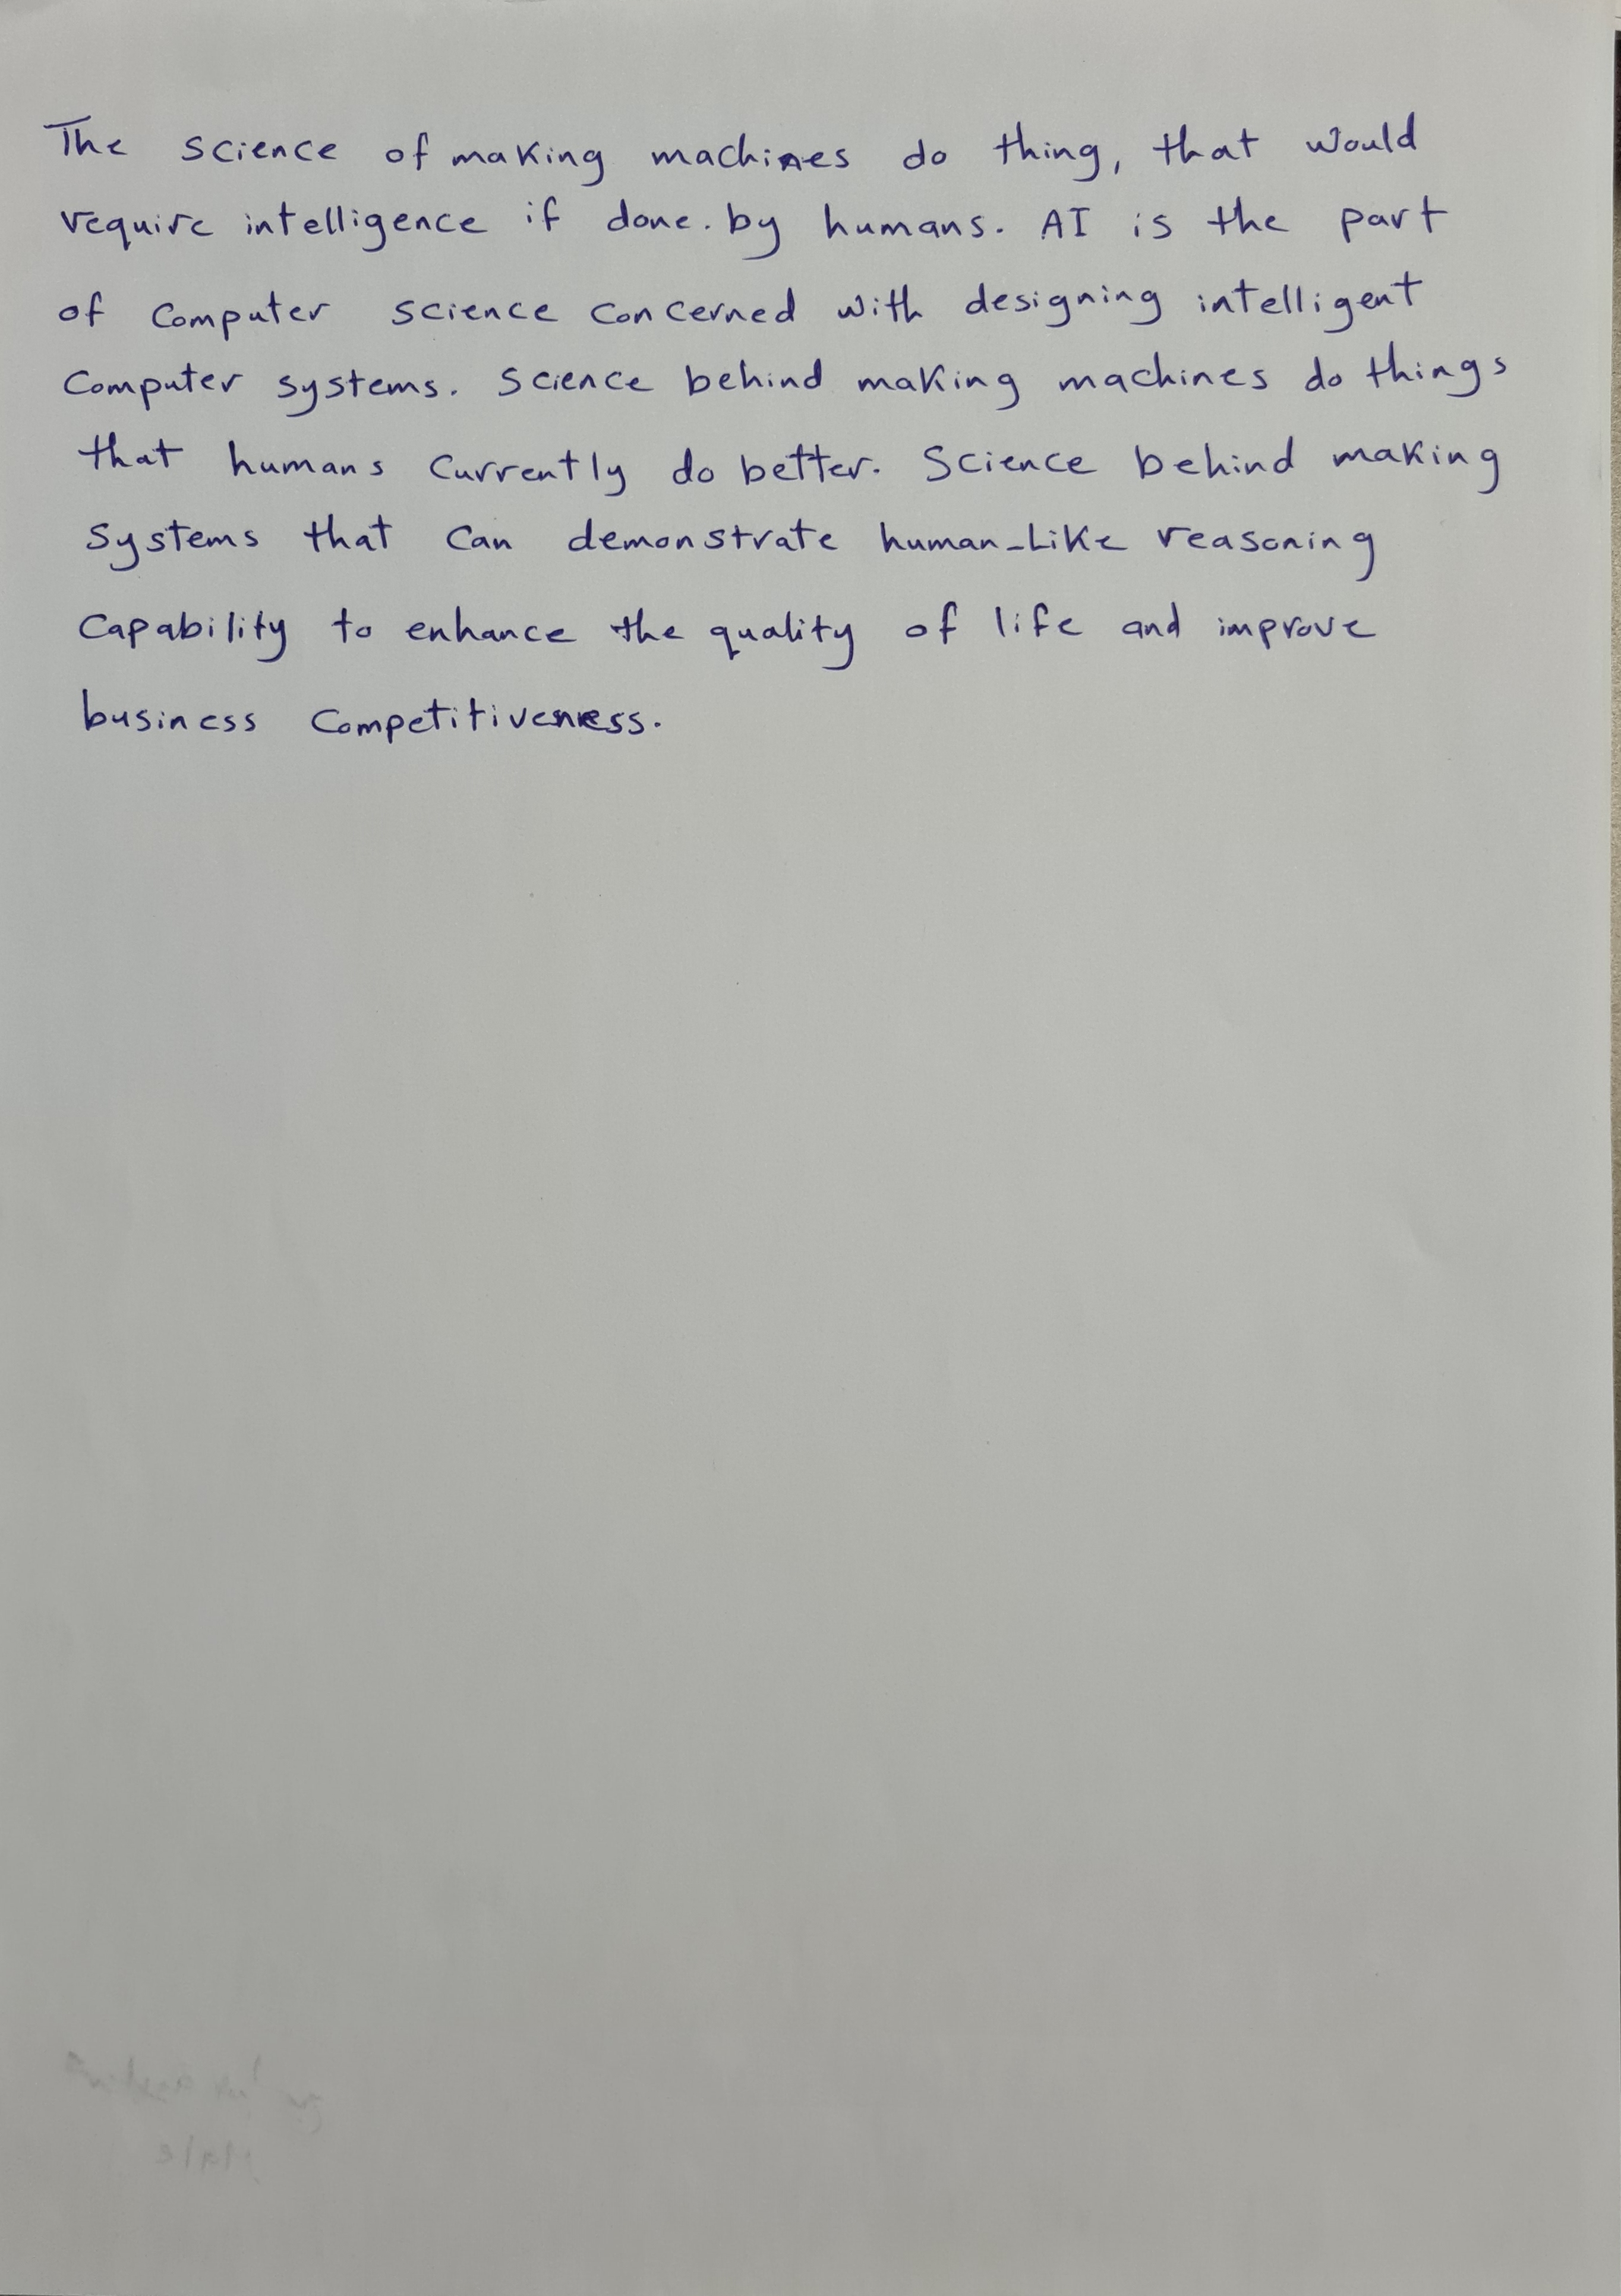 The science of making machines do thing, that would
require intelligence if done. by humans. AI is the part
of computer science concerned with designing intelligent
computer systems. Science behind making machines do things
that humans currently do better. Science behind making
systems that can demonstrate human-like reasoning
capability to enhance the quality of life and improve
business competitiveness.